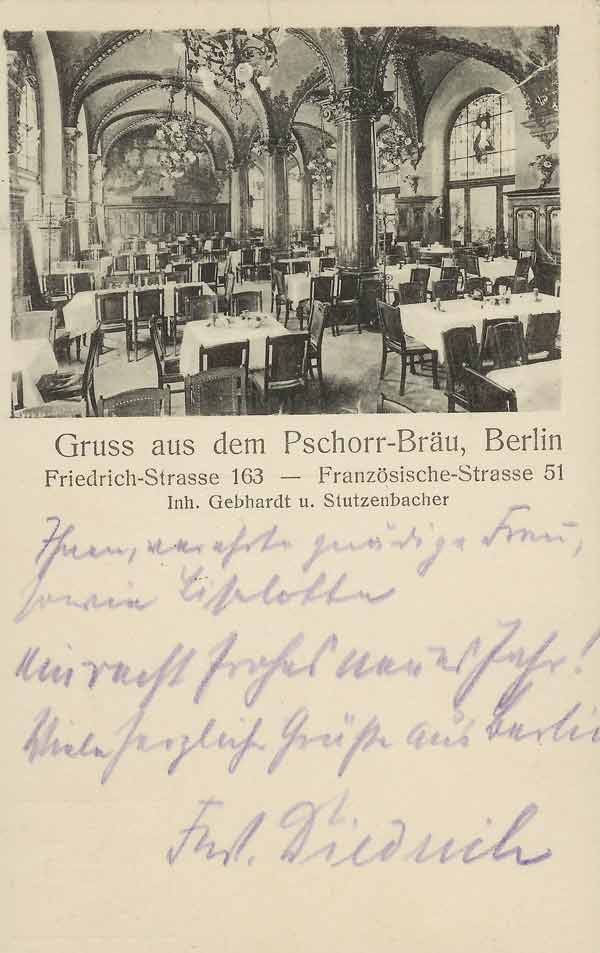 Gruss aus dem Pschorr-Bräu, Berlin
Friedrich-Strasse 163 — Französische-Strasse 51
Inh. Gebhardt u. Stutzenbacher
Ihnen, verehrte gnädige Frau,
sowie Liselotte
ein recht frohes neues Jahr!
Viele herzliche Grüße aus Berlin
Diedrich